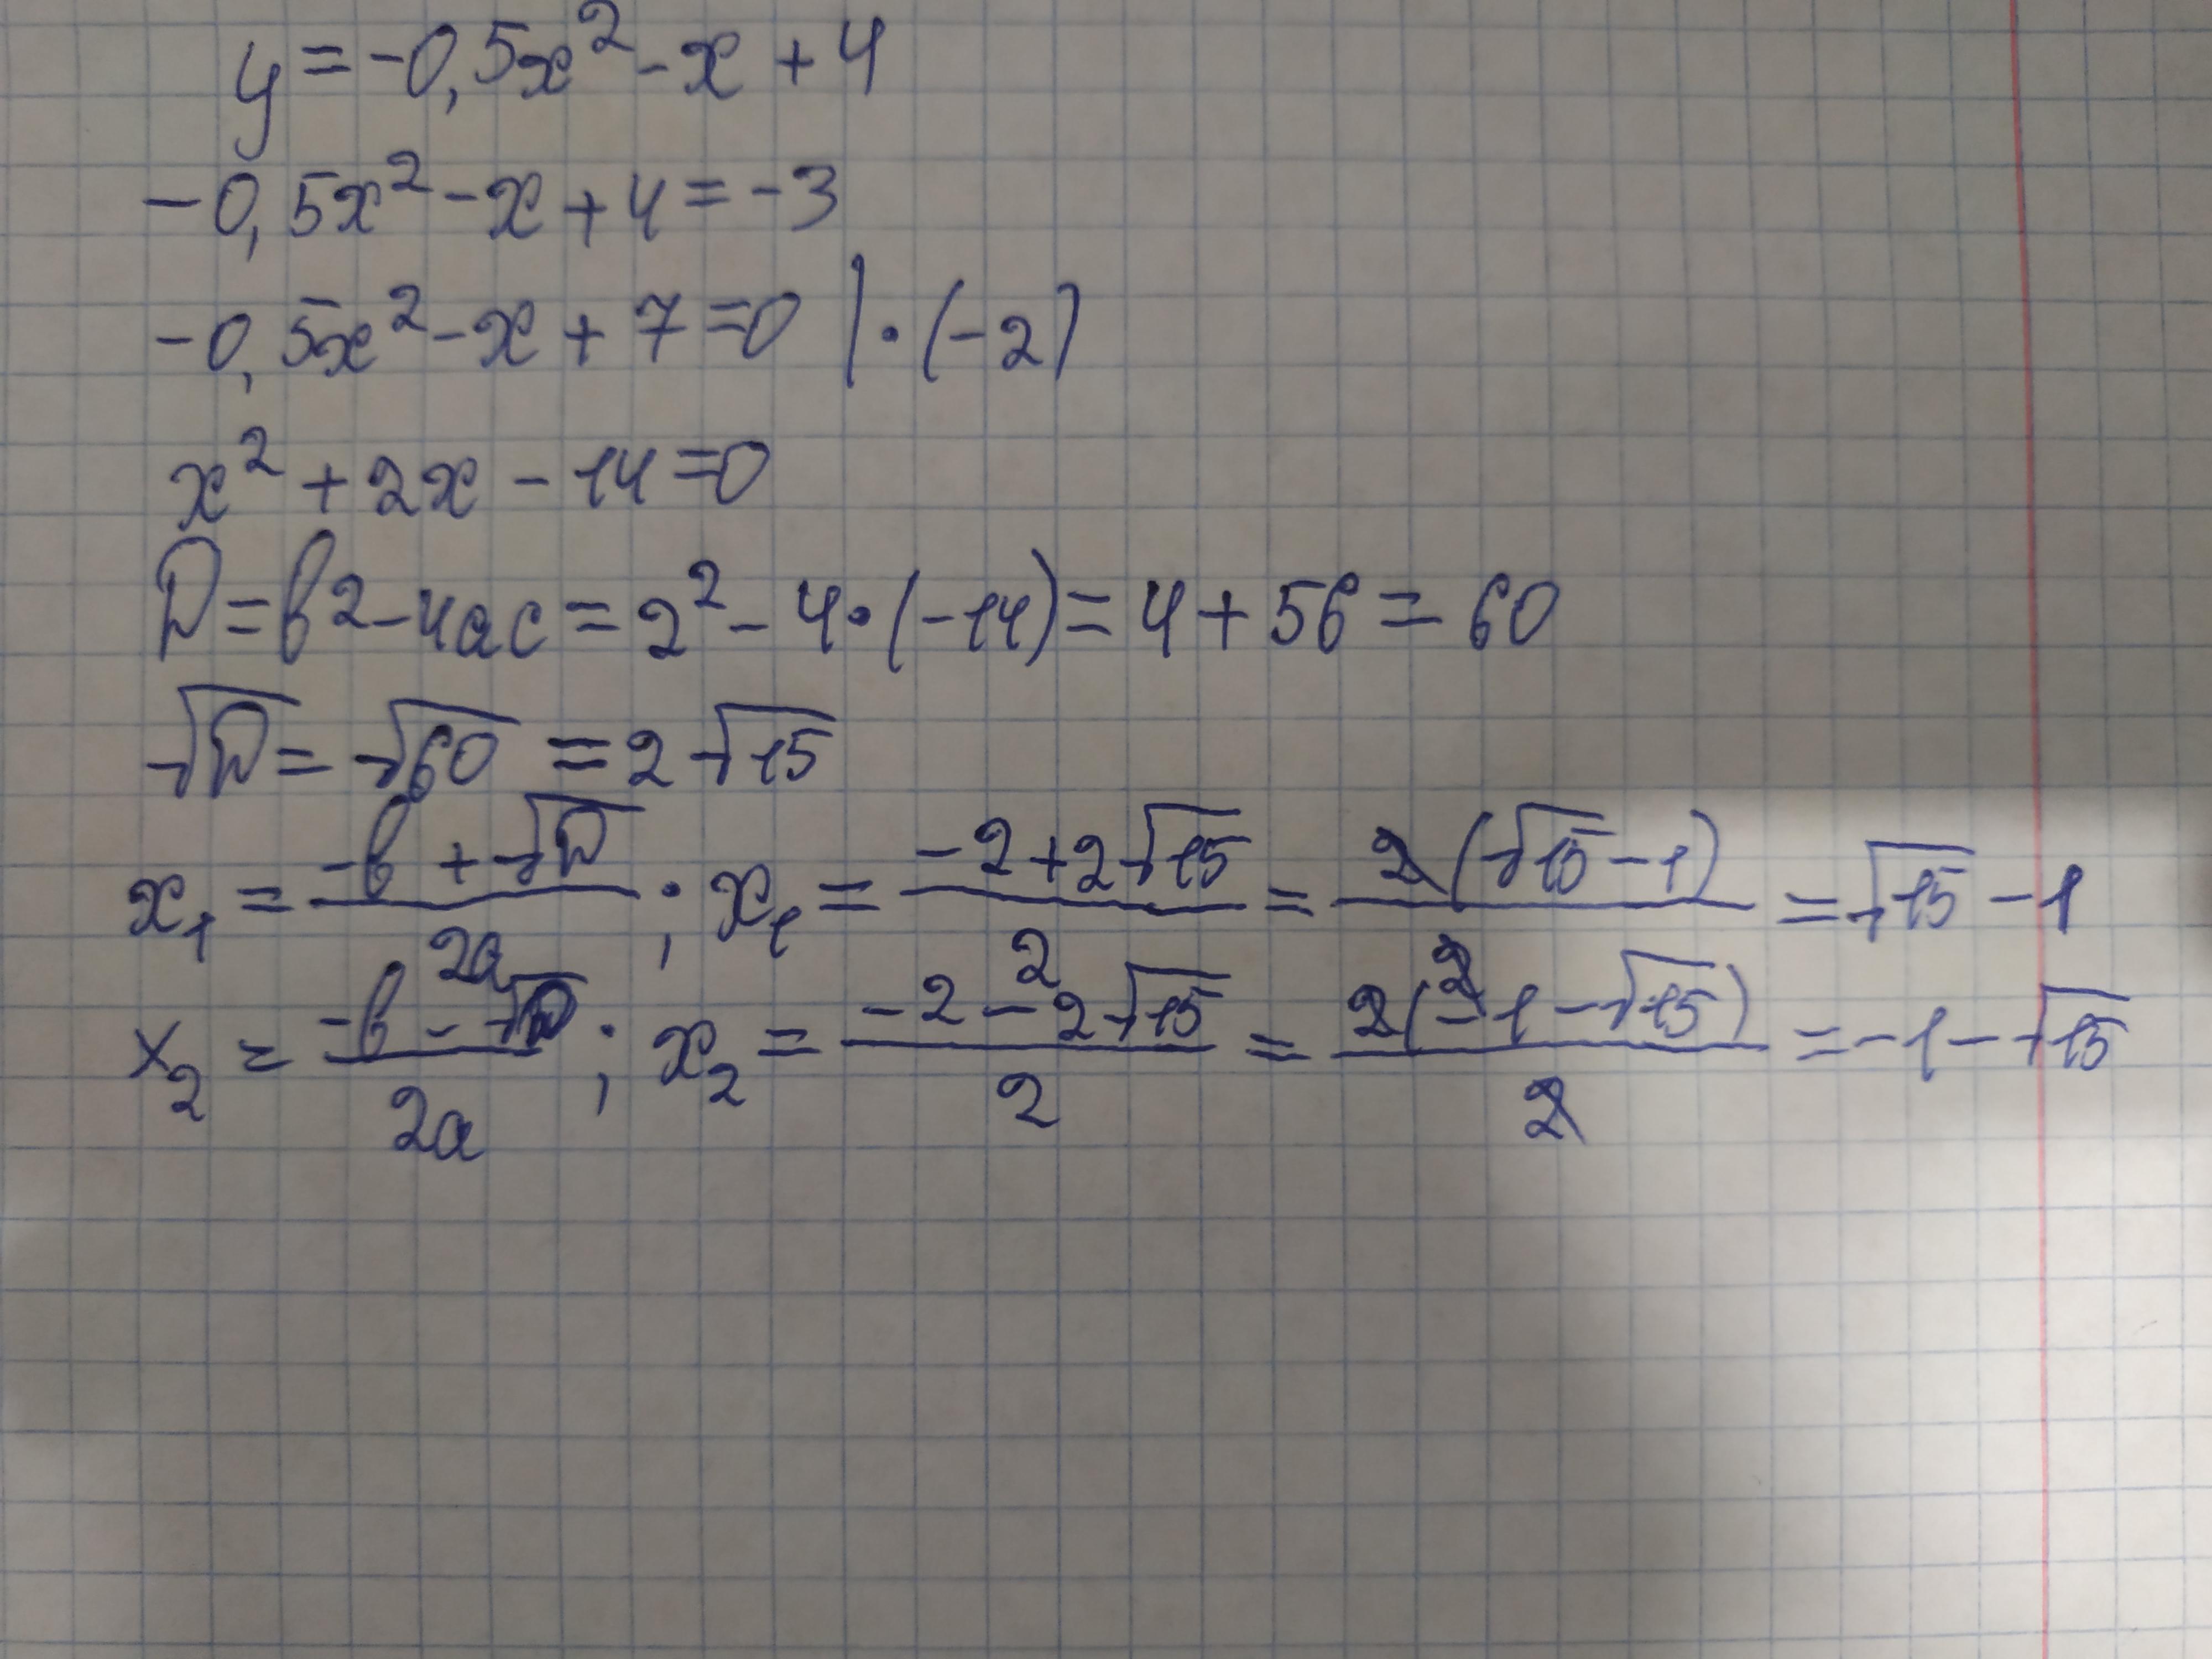 y = -0,5x² - x + 4
-0,5x² - x + 4 = -3
-0,5x² - x + 7 = 0 | · (-2)
x² + 2x - 14 = 0
D = b2 - 4ac = 2² - 4 · (-14) = 4 + 56 = 60
√D = √60 = 2√15
x₁ = (-b + √D)/2a ; x₁ = (-2 + 2√15)/2 = 2(√15 - 1)/2 = √15 - 1
x₂ = (-b - √D)/2a ; x₂ = (-2 - 2√15)/2 = 2(-1 - √15)/2 = -1 - √15